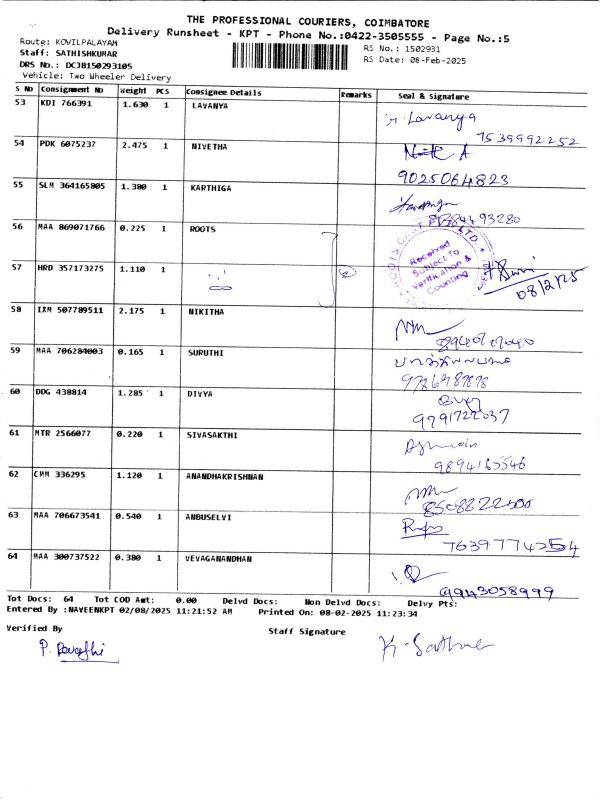 THE PROFESSIONAL COURIERS, COIMBATORE
Delivery Runsheet - KPT - Phone No.:0422-3505555 - Page No.:5
Route: KOVILPALAYAM
Staff: SATHISHKUMAR
DRS No.: DCJB150293105
Vehicle: Two Wheeler Delivery
RS No.: 1502931
RS Date: 08-Feb-2025
S No Consignment No Weight PCS Consignee Details Remarks Seal & Signature
53 KDI 766391 1.630 1 LAVANYA
Lavanya
7539992252
54 PDK 6075237 2.475 1 NIVETHA
A
9025064823
55 SLM 364165805 1.380 1 KARTHIGA
56 MAA 869071766 0.225 1 ROOTS
Received
Subject To
Verification &
Counting
57 HRD 357173275 1.110 1 2
08/2/25
58 IXM 507789511 2.175 1 NIKITHA
59 MAA 706284003 0.165 1 SURUTHI
60 DDG 438814 1.285 1 DIVYA
9791722037
61 MTR 2566077 0.220 1 SIVASAKTHI
9894165546
62 CMM 336295 1.120 1 ANANDHAKRISHNAN
8508822500
63 MAA 706673541 0.540 1 ANBUSELVI
7639774254
64 MAA 300737522 0.380 1 VEVAGANANDHAN
9943058999
Tot Docs: 64 Tot COD Amt: 0.00 Delvd Docs: Non Delvd Docs: Delvy Pts:
Entered By :NAVEENKPT 02/08/2025 11:21:52 AM Printed On: 08-02-2025 11:23:34
Verified By Staff Signature
P. K. Sathish